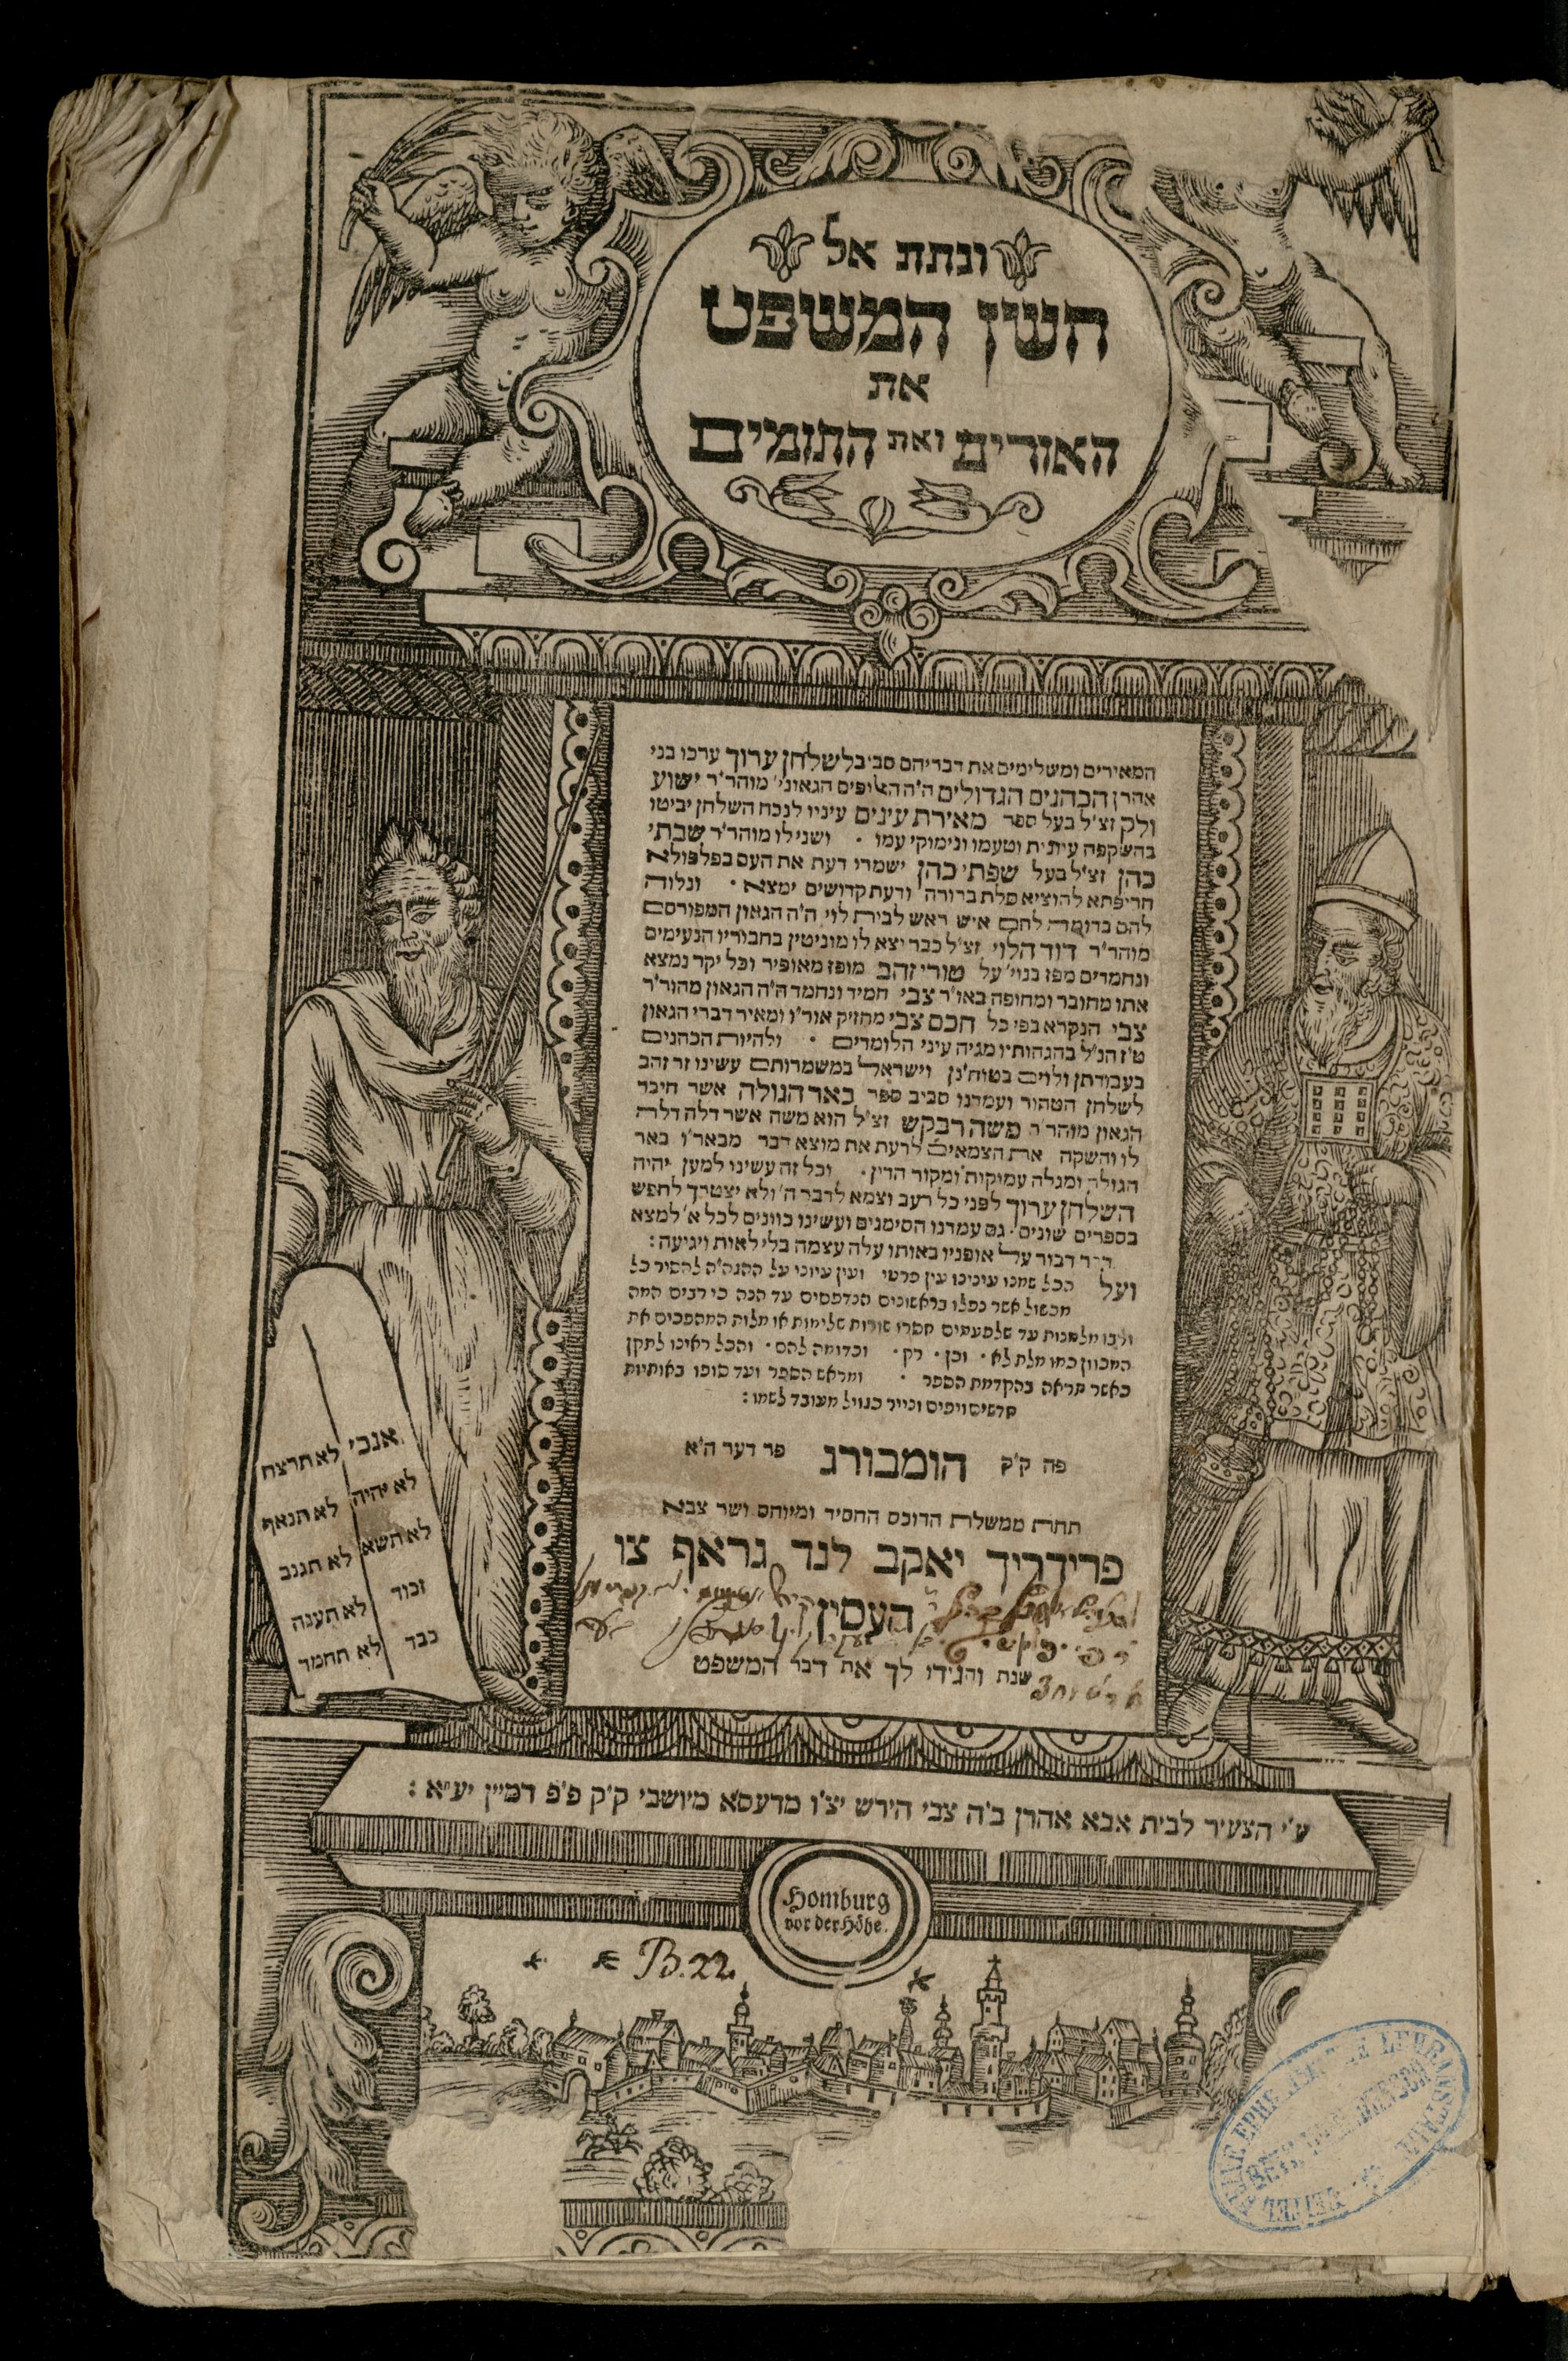 ונתת אל
חשן המשפט
את
האורים ואת התומים
המאירים ומשלימים את דבריהם סביב לשלחן ערוך ערכו בני
אהרן הכהנים הגדולים ה"ה האלופים הגאוני' מוהר"ר ישוע
ולק זצ"ל בעל ספר מאירת עינים עיניו לנכח השלחן יביטו
בהשקפה עיונית וטעמו ונימוקי עמו · ושני לו מוהר"ר שבתי
כהן זצ"ל בעל שפתי כהן ישמרו דעת את העם בפלפולא
חריפתא להוציא סלת ברורה ודעת קדושים ימצא · ונלוה
להם בדומה לחם איש ראש לבית לוי ה"ה הגאון המפורסם
מוהר"ר דוד הלוי זצ"ל כבר יצא לו מוניטין בחבוריו הנעימים
ונחמדים מפז בנוי' על טורי זהב מופז מאופיר וכל יקר נמצא
אתו מחובר ומחופה באו"ר צבי חמיד ונחמד ה"ה הגאון מהור"ר
צבי הנקרא בפי כל חכם צבי מחזיק אור"ו ומאיר דברי הגאון
ט"ז הנ"ל בהגהותיו מגיה עיני הלומדים · ולהיות הכהנים
בעבודתן ולוים בטוח"נן וישראל במשמרותם עשינו זר זהב
לשלחן הטהור ועמדנו סביב ספר באר הגולה אשר חיבר
הגאון מוהר"ר משה רבקש זצ"ל הוא משה אשר דלה דלה
לו והשקה את הצמאים לדעת את מוצא דבר מבאר"ו באר
הגולה ומגלה עמיקות ומקור הדין · וכל זה עשינו למען יהיה
השלחן ערוך לפני כל רעב וצמא לדבר ה' ולא יצטרך לחפש
בספרים שונים · גם עמדנו הסימנים ועשינו כוונים לכל א' למצא
דבר דבור על אופניו באותו עלה עצמה בלי לאות ויגיעה :
ועל הכל שמנו עינינו עין פרטי ועין עיוני על ההגה"ה להסיר כל
מכשול אשר נפלו בראשונים הנדפסים עד הנה כי רבים המה
ורבו מלמנות עד שלפעמים חסרו שורות שלימות או מלות המהפכים את
המכוון כמו מלת לא · וכן · רק · וכדומה להם · והכל ראינו לתקן
כאשר תראה בהקדמת הספר · ומראש הספר ועד סופו באותיות
חדשים ויפים ונייר כגויל מעובד לשמו :
פה ק"ק הומבורג פר דער ה"א
תחת ממשלת הדוכס החסיד ומיוחס ושר צבא
פרידריך יאקב לנד גראף צו
העסין
שנת והגידו לך את דבר המשפט
אנכי לא תרצח
לא יהיה לא תנאף
לא תשא לא תגנב
זכור לא תענה
כבד לא תחמד
ע"י הצעיר לבית אבא אהרן ב"ה צבי הירש יצ"ו מדעסא מיושבי ק"ק פ"פ דמיין יע"א :
Homburg
vor der Höhe.
B. 22.